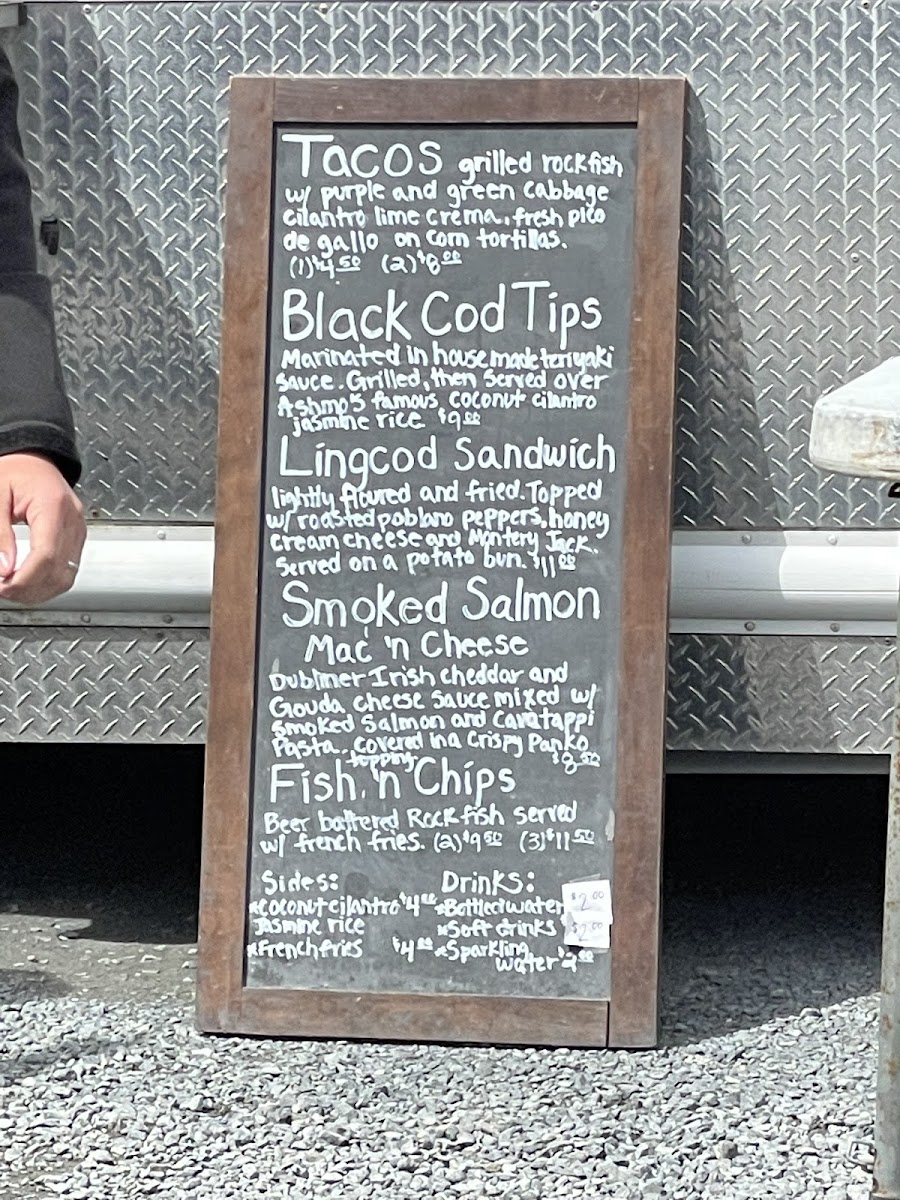 Tacos grilled rockfish
w/ purple and green cabbage
cilantro lime crema, fresh pico
de gallo on corn tortillas.
(1) $4.50 (2) $8.00
Black Cod Tips
Marinated in house made teriyaki
sauce. Grilled, then served over
Ashmo's famous coconut cilantro
jasmine rice $9.00
Lingcod Sandwich
lightly floured and fried. Topped
w/ roasted poblano peppers, honey
cream cheese and Montery Jack.
Served on a potato bun. $11.00
Smoked Salmon
Mac 'n Cheese
Dubliner Irish cheddar and
Gouda cheese sauce mixed w/
smoked Salmon and Cavatappi
Pasta. covered in a crispy Panko
topping $8.50
Fish 'n Chips
Beer battered Rockfish served
w/ french fries. (2) $9.50 (3) $11.50
Sides: Drinks:
*coconut cilantro $4.00 *Bottled water $2.00
Jasmine rice *Soft drinks $2.00
*French fries $4.00 *Sparkling
water $2.00